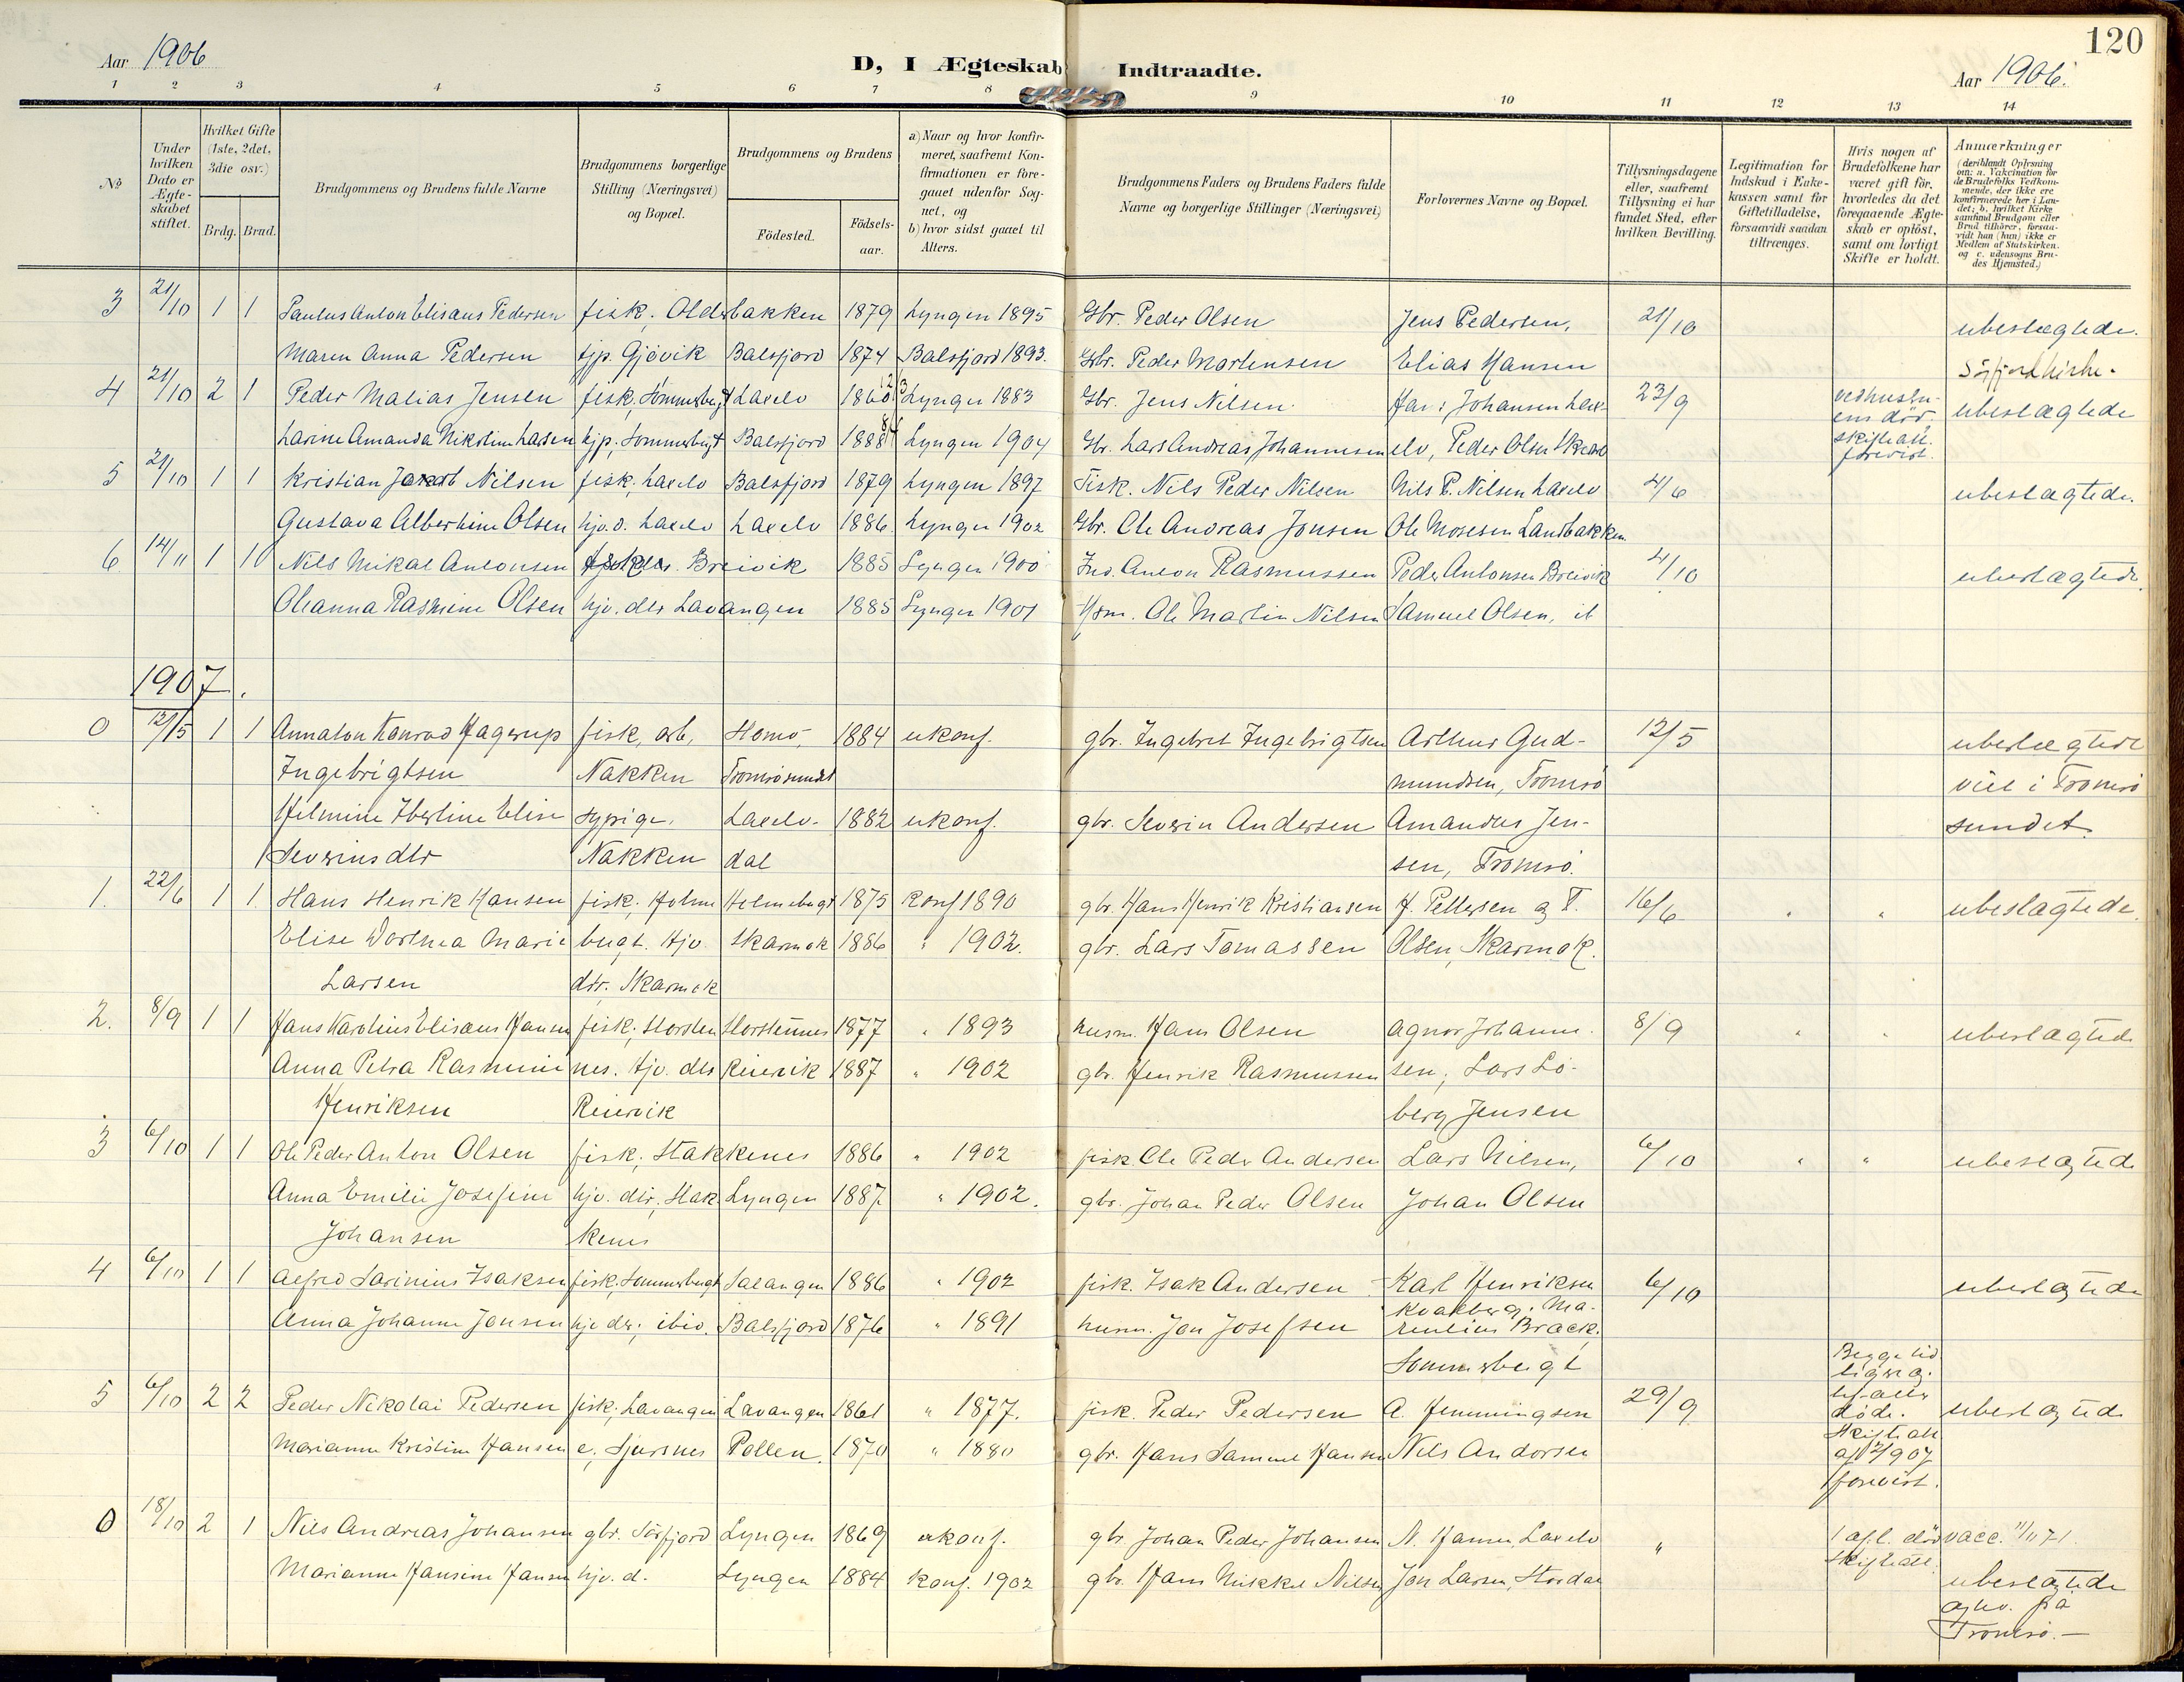 120
Aar 1906
D, I Ægteskab Indtraadte.
Aar 1906.
1 2 3 4 5 6 7 8 9 10 11 12 13 14
No
Under hvilken Dato er Ægteskabet stiftet.
Hvilket Gifte (1ste, 2det, 3die osv.)
Brdg. Brud.
Brudgommens og Brudens fulde Navne
Brudgommens borgerlige Stilling (Næringsvei) og Bopæl.
Brudgommens og Brudens
Födested.
Födsels-aar.
a) Naar og hvor konfirmeret, saafremt Konfirmationen er foregaaet udenfor Sognet, og
b) hvor sidst gaaet til Alters.
Brudgommens Faders og Brudens Faders fulde Navne og borgerlige Stillinger (Næringsvei)
Forlovernes Navne og Bopæl.
Tillysningsdagene eller, saafremt Tillysning ei har fundet Sted, efter hvilken Bevilling.
Legitimation for Indskud i Enkekassen samt for Giftetilladelse, forsaavidt saadan tiltrænges.
Hvis nogen af Brudefolkene har været gift för, hvorledes da det foregaaende Ægteskab er oplöst, samt om lovligt Skifte er holdt.
Anmærkninger
(deriblandt Oplysning om: a. Vakcination for de Brudefolks Vedkommende, der ikke ere konfirmerede her i Landet; b. hvilket Kirkesamfund Brudgom eller Brud tilhører, forsaavidt han (hun) ikke er Medlem af Statskirken. og c. udensogns Brudes Hjemsted.)
3 21/10 1 1 Paulus Anton Elisæus Pedersen fisk. Olderbakken 1879 Lyngen 1895 Gbr. Peder Olsen Jens Pedersen, 21/10 ubeslægtede.
Maren Anna Pedersen tjp. Gjövik Balsfjord 1874 Balsfjord 1893. Gbr. Peder Mortensen Elias Hansen Sörfjord kirke.
4 21/10 2 1 Peder Malias Jensen fisk, Sommerbugt Laxelv 1860 Lyngen 1883 Gbr. Jens Nilsen Har: Johansen Lax- 23/9 ved hustru- ubeslægtede
ens död.
Larine Amanda Nikoline Larsen hjp. Sommerbugt Balsfjord 1888 Lyngen 1904 Gbr. Lars Andreas Johannesen elv, Peder Olsen skifteatt.
forevist.
5 21/10 1 1 Kristian Jakob Nilsen fisk. Laxelv Balsfjord 1879 Lyngen 1897 Fisk. Nils Peder Nilsen Nils P. Nilsen Laxelv 4/6 ubeslægtede.
Gustava Albertine Olsen hjv. d. Laxelv Laxelv 1886 Lyngen 1902 Gbr. Ole Andreas Jonsen Ole Mosesen Landbakken
6 14/11 1 1 Nils Mikal Antonsen fisker. Breivik 1885 Lyngen 1900 Ind. Anton Rasmussen Peder Antonsen Breivik 4/10 ubeslægtede.
Oleanna Rasmine Olsen hjv. dtr Lavangen 1885 Lyngen 1901 Hsm. Ole Martin Nilsen Samuel Olsen, it
1907.
0 12/5 1 1 Annaton Konrad Hagerup fisk, arb, 1884 ukonf. gbr. Ingebret Ingebrigtsen Arthur Gud- 12/5 ubeslægtede
Ingebrigtsen Nakken Tromsösundet mundsen, Tromsö viet i Tromsö
Hilmine Iberline Elise sypige. Laxelv- 1882 ukonf. gbr. Severin Andersen Amandus Jen- sundet.
Severinsdtr Nakken dal sen, Tromsö.
1. 22/6 1 1 Hans Henrik Hansen fisk, Holme Holmebugt 1875 Konf 1890 gbr. Hans Henrik Kristiansen H. Pettersen og T. 16/6 " " ubeslægtede.
Elise Dorthea Marie bugt. hjv. Skarmok 1886 " 1902. gbr. Lars Tomassen Olsen, Skarmok.
Larsen dtr. Skarmok
2. 8/9 1 1 Hans Karolius Elisæus Hansen fisk, Horsten Horstennes 1877 " 1893 husm. Hans Olsen Agnor Johanne- 8/9 " " ubeslægtede
Anna Petra Rasmine nes. hjv. dtr Reiervik 1887 " 1902 gbr. Henrik Rasmussen sen; Lars Lö-
Henriksen Reiervik berg Jensen
3 6/10 1 1 Ole Peder Anton Olsen fisk. Stakkenes 1886 " 1902 fisk. Ole Peder Andersen Lars Nilsen, 6/10 " " ubeslægtede
Anna Emilie Josefine hjv. dtr, Stak Lyngen 1887 " 1902. gbr. Johan Peder Olsen Johan Olsen
Johansen kenes
4 6/10 1 1 Alfred Sarinius Isaksen fisk, Sommerbugt Salangen 1886 " 1902 fisk. Isak Andersen Karl Henriksen 6/10 ubeslægtede
Kvalberg. Ma-
Anna Johanne Jonsen hjv. dtr. ibid. Balsfjord 1876 " 1891 husm. Jon Josefsen renlius Brock.
Sommerbugt
5 6/10 2 2 Peder Nikolai Pedersen fisk, Lavangen Lavangen 1861 " 1877. fisk. Peder Pedersen A. Hemmingsen 29/9 Begge tid
ligere æg.
døde. ubeslægtede
Marianne Kristine Hansen e, Sjursnes Pollen. 1870 " 1880 gbr. Hans Samuel Hansen Nils Andorsen Skifteatt
forevist.
0 18/10 2 1 Nils Andreas Johansen gbr. Sörfjord Lyngen 1869 ukonf. gbr. Johan Peder Johansen N. Hansen, Laxelv " vacc. 11/11 71.
Skifteatt.
Marianne Hansine Hansen hjv. d. Lyngen 1884 konf. 1902 gbr. Hans Mikkel Nilsen Jon Larsen, Stordal ubeslægtede
Tromsö.—